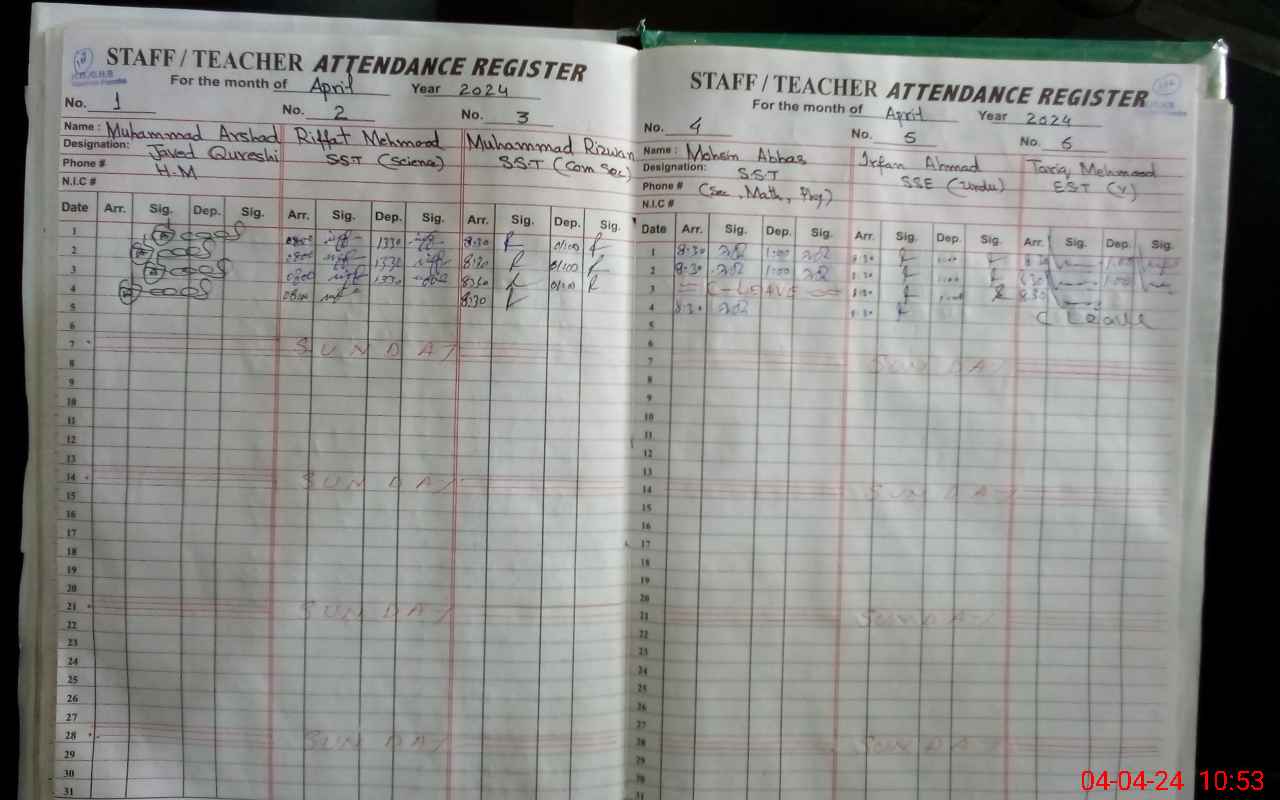 STAFF / TEACHER ATTENDANCE REGISTER
For the month of April Year 2024
No. 1 No. 2 No. 3
Name : Muhammad Arshad Javed Qureshi Riffat Mehmood Muhammad Rizwan
Designation: H.M SST (Science) SST (Com Sec)
Phone #
N.I.C #
Date Arr. Sig. Dep. Sig. Arr. Sig. Dep. Sig. Arr. Sig. Dep. Sig.
1 0800 1330 8:30 01:00
2 0800 1330 8:30 01:00
3 0800 1330 8:30 01:00
4 0800 8:30
5
6
7 SUNDAY
8
9
10
11
12
13
14 SUNDAY
15
16
17
18
19
20
21 SUNDAY
22
23
24
25
26
27
28 SUNDAY
29
30
31
STAFF / TEACHER ATTENDANCE REGISTER
For the month of April Year 2024
No. 4 No. 5 No. 6
Name : Mohsin Abbas Irfan Ahmad Tariq Mehmood
Designation: S.S.T SSE (Urdu) EST (V)
Phone # (Sec, Math, Phy)
N.I.C #
Date Arr. Sig. Dep. Sig. Arr. Sig. Dep. Sig. Arr. Sig. Dep. Sig.
1 8:30 1:00 8:30 1:00 8:30 1:00
2 8:30 1:00 8:30 1:00 8:30 1:00
3 C-LEAVE 8:30 1:00 8:30
4 8:30 8:30 C Leave
5
6
7 SUNDAY
8
9
10
11
12
13
14 SUNDAY
15
16
17
18
19
20
21 SUNDAY
22
23
24
25
26
27
28 SUNDAY
29
30
31
04-04-24 10:53